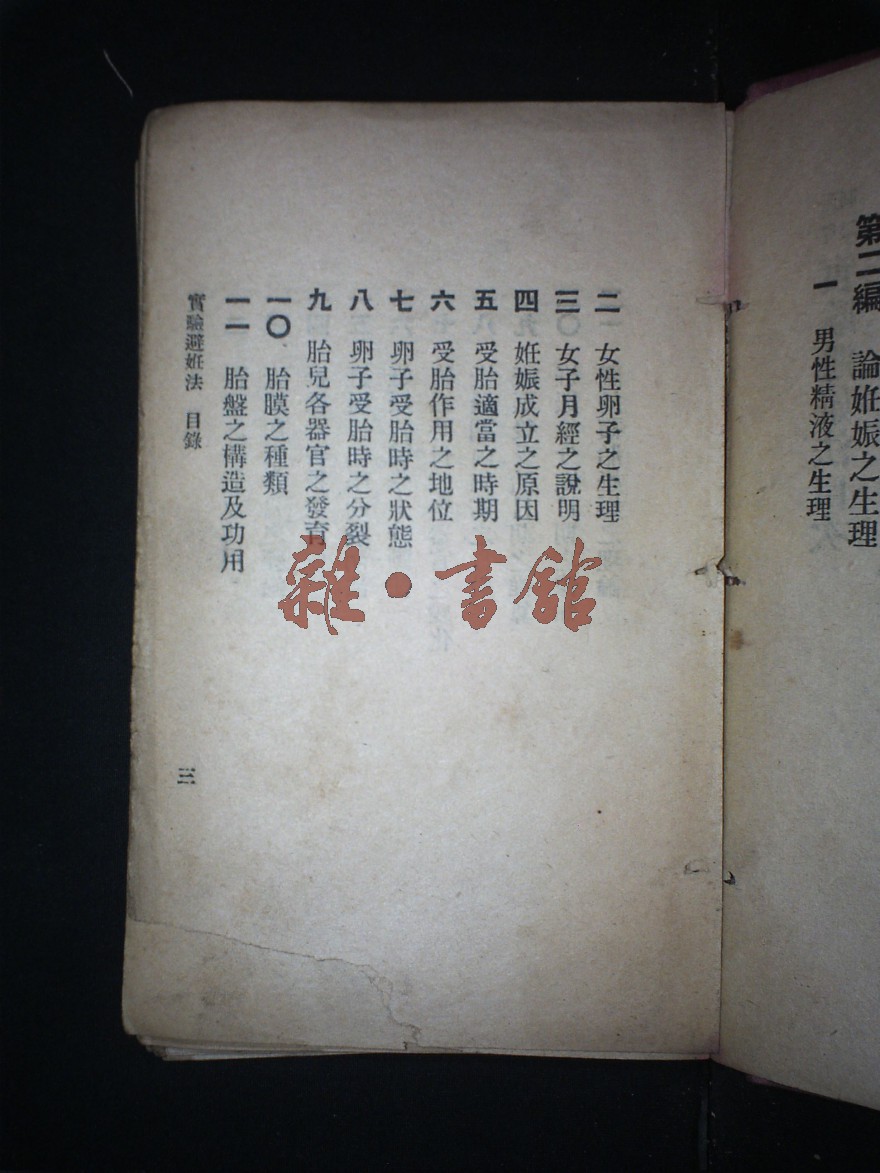 第二編 論姙娠之生理
一 男性精液之生理
二 女性卵子之生理
三 女子月經之說明
四 姙娠成立之原因
五 受胎適當之時期
六 受胎作用之地位
七 卵子受胎時之狀態
八 卵子受胎時之分裂
九 胎兒各器官之發育
一〇、胎膜之種類
一一 胎盤之構造及功用
實驗避姙法 目錄
三
雜·書館